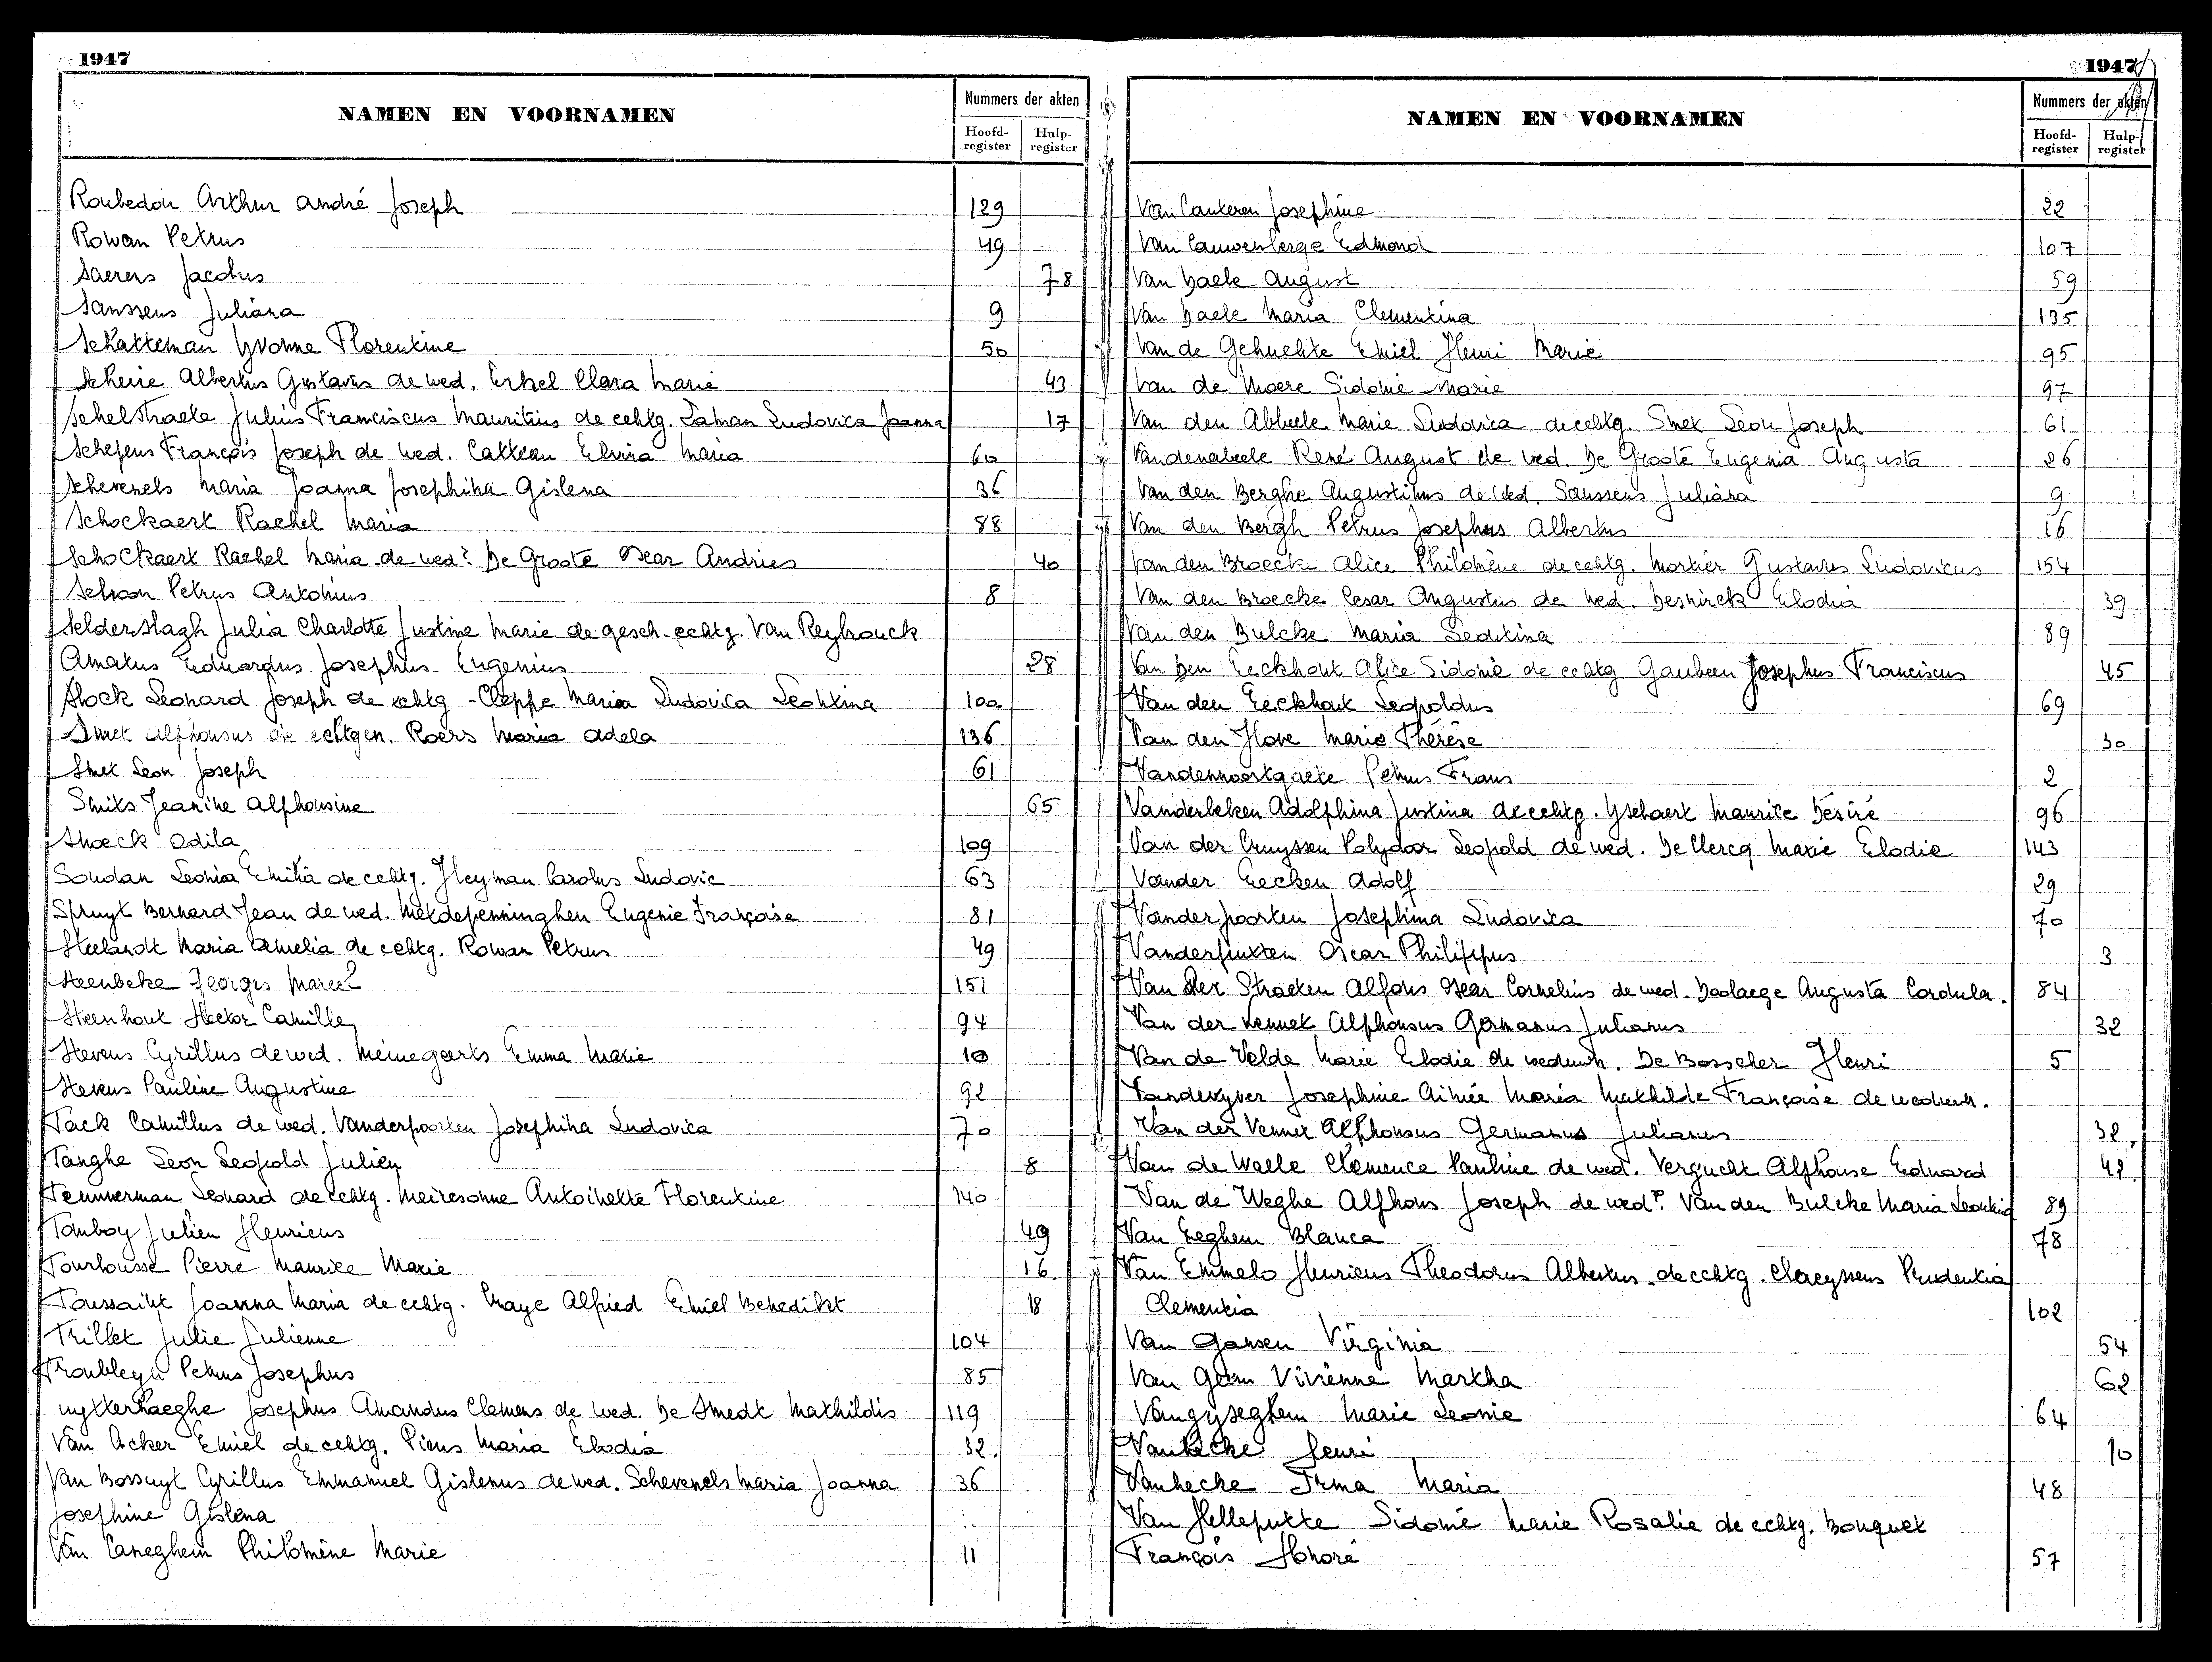 1947
NAMEN EN VOORNAMEN
Nummers der akten
Hoofd-register
Hulp-register
Roubedon Arthur André Joseph 129
Rowan Petrus 49
Saerens Jacobus 78
Sanssens Juliana 9
Schatteman Yvonne Florentine 50
Scheire Albertus Gustavus de wed. Clara Marie 43
Schelstraete Julius Franciscus Mauritius de echtg. Taman Ludovica Joanna 17
Schepens François Joseph de wed. Catteau Elvira Maria 60
Schevenels Maria Joanna Josephina Gislena 36
Schockaert Rachel Maria 88
Schockaert Rachel Maria de wed? De Groote Oscar Andries 40
Petrus Antonius 8
Selderslagh Julia Charlotte Justine Marie de gesch. echtg. Van Reybrouck
Amatus Eduardus Josephus Eugenius 28
Slock Leonard Joseph de echtg - Cleppe Maria Ludovica Leontina 100
Smet Alphonsus de echtgen. Roers Maria Adela 136
Smet Leon Joseph 61
Smits Jeanine Alphonsine 65
Snoeck Odila 109
Soudan Leonia Emilia de echtg. Heyman Carolus Ludovic 63
Spruyt Bernard Jean de wed. Metdepenninghen Eugenie Françoise 81
Steelandt Maria Amelia de echtg. Rowan Petrus 49
Steenbeke Georges Marcel 151
Steenhout Hector Camille 94
Stevens Cyrillus de wed. Meinegaerts Emma Marie 10
Stevens Pauline Augustine 92
Tack Camillus de wed. Vanderpoorten Josephina Ludovica 70
Tanghe Leon Leopold Julien 8
Temmerman Leonard de echtg. Meiresonne Antoinette Florentine 140
Tomboy Julien Henricus 49
Tourlousse Pierre Maurice Marie 16
Toussaint Joanna Maria de echtg. Praye Alfried Emiel Benedikt 18
Trillet Julie Julienne 104
Troubleyn Petrus Josephus 85
uytterhaeghe Josephus Amandus Clemens de wed. De Smedt Mathildis 119
Van Acker Emiel de echtg. Piens Maria Elodia 32
Van Bossuyt Cyrillus Emmanuel Gislenus de wed. Schevenels Maria Joanna 36
Josephine Gislena
Van Caneghem Philomène Marie 11
1947
NAMEN EN VOORNAMEN
Nummers der akten
Hoofd-register
Hulp-register
Van Cauteren Josephine 22
Van Cauwenberge Edmond 107
Van Daele August 59
Van Daele Maria Clementina 135
Van de Gehuchte Emiel Henri Marie 95
Van de Moere Sidonie Marie 97
Van den Abbeele Marie Ludovica de echtg. Smet Leon Joseph 61
Vandenabeele René August de wed. De Groote Eugenia Augusta 26
Van den Berghe Augustinus de wed. Sanssens Juliana 9
Van den Bergh Petrus Josephus Albertus 16
Van den Broecke Alice Philomène de echtg. Mortier Gustavus Ludovicus 154
Van den Broecke Cesar Augustus de wed. Desnirck Elodia 39
Van den Bulcke Maria Leontina 89
Van den Eeckhout Alice Sidonie de echtg. Gaubeen Josephus Franciscus 45
Van den Eeckhout Leopoldus 69
Van den Hove Marie Thérèse 30
Vandennoortgaete Petrus Frans 2
Vanderbeken Adolphina Justina de echtg. Yschaert Maurice Désiré 96
Van der Cruyssen Polydoor Leopold de wed. De Clercq Marie Elodie 143
Vander Eecken Adolf 29
Vanderpoorten Josephina Ludovica 70
Vanderputten Oscar Philippus 3
Van der Straeten Alfons Oscar Cornelius de wed. Deolaege Augusta Cordula. 84
Van der Vennet Alphonsus Germanus Julianus 32
Van de Velde Marie Elodie de weduwe. De Bosscher Henri 5
Vandevyver Josephine Aimée Maria Mathilde Françoise de weduwe.
Van der Vennet Alphonsus Germanus Julianus 32
Van de Walle Clemence Pauline de wed. Vergucht Alphonse Eduard 42
Van de Weghe Alfhons Joseph de wed? Van den Bulcke Maria Leontina 89
Van Eeghem Blanca 78
Van Emmelo Henricus Theodorus Albertus de echtg. Claeyssens Prudentia
Clementia 102
Van Gansen Virginia 54
Van Geem Vivienne Martha 62
Vangyseghem Marie Leonie 64
Vanhecke Henri 10
Vanhecke Irma Maria 48
Van Helleputte Sidonie Marie Rosalie de echtg. Bouquet
François Honoré 57